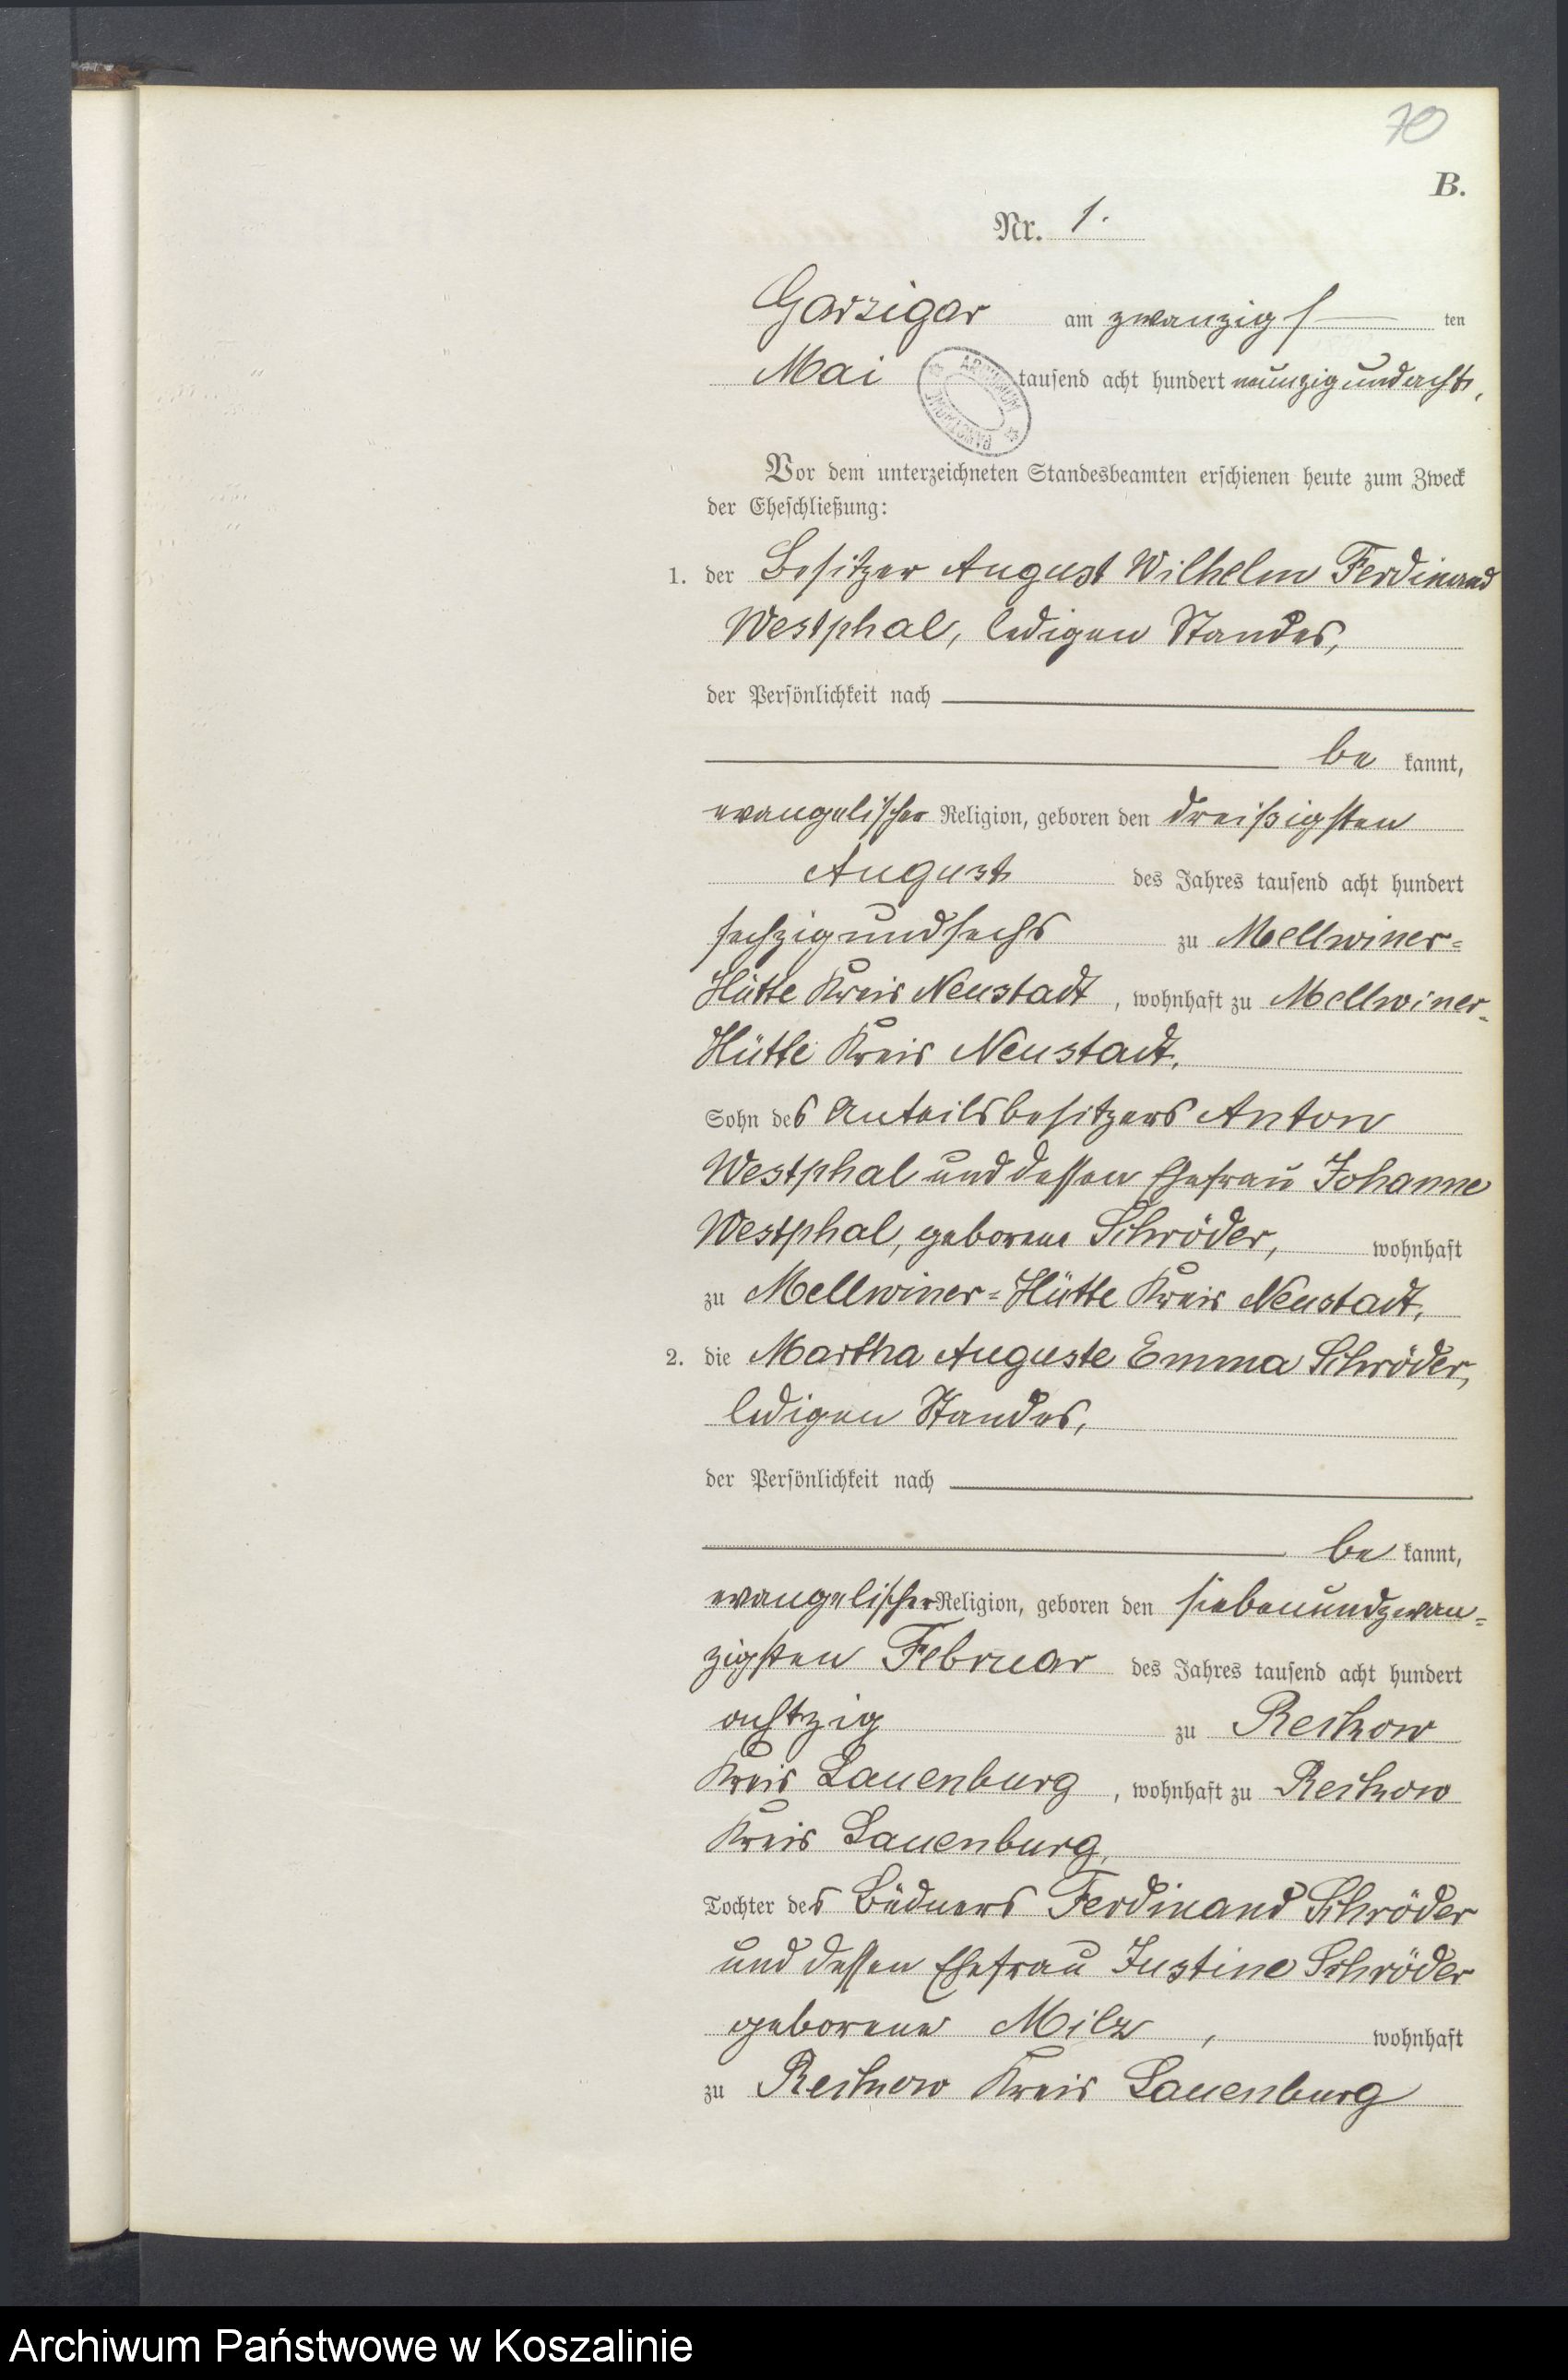 70
B.
Nr. 1.
Garzigar am zwanzigs ten
Mai tausend acht hundert neunzig und acht,
ARCHIWUM PAŃSTWOWE
Vor dem unterzeichneten Standesbeamten erschienen heute zum Zweck
der Eheschließung:
1. der Besitzer August Wilhelm Ferdinand
Westphal, ledigen Standes,
der Persönlichkeit nach
be kannt,
evangelischer Religion, geboren den dreißigsten
August des Jahres tausend acht hundert
sechzig und sechs zu Mellwiner-
Hütte Kreis Neustadt, wohnhaft zu Mellwiner-
Hütte Kreis Neustadt.
Sohn des Anteilsbesitzers Anton
Westphal und dessen Ehefrau Johanne
Westphal, geborene Schröder, wohnhaft
zu Mellwiner-Hütte Kreis Neustadt,
2. die Martha Auguste Emma Schröder,
ledigen Standes,
der Persönlichkeit nach
be kannt,
evangelischer Religion, geboren den siebenundzwan-
zigsten Februar des Jahres tausend acht hundert
achtzig zu Reckow
Kreis Lauenburg, wohnhaft zu Reckow
Kreis Lauenburg,
Tochter des Büdners Ferdinand Schröder
und dessen Ehefrau Justine Schröder
geborene Milz, wohnhaft
zu Reckow Kreis Lauenburg
Archiwum Państwowe w Koszalinie